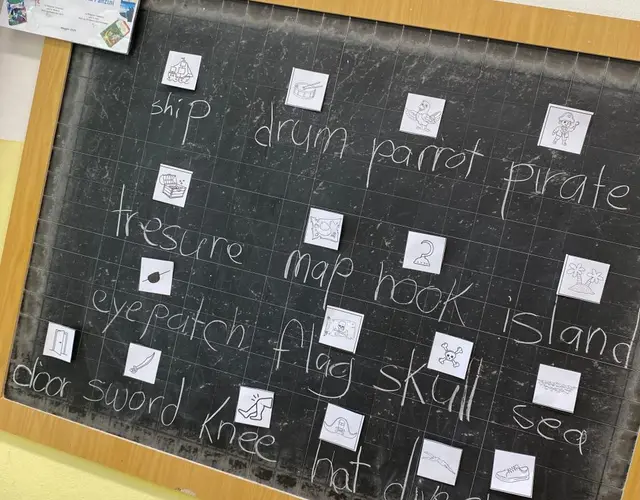 ship drum parrot pirate
tresure map hook island
eyepatch flag skull sea
door sword knee hat